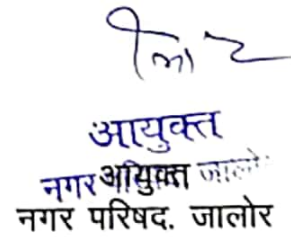 आयुक्त
नगर आयुक्त जालो
नगर परिषद. जालोर